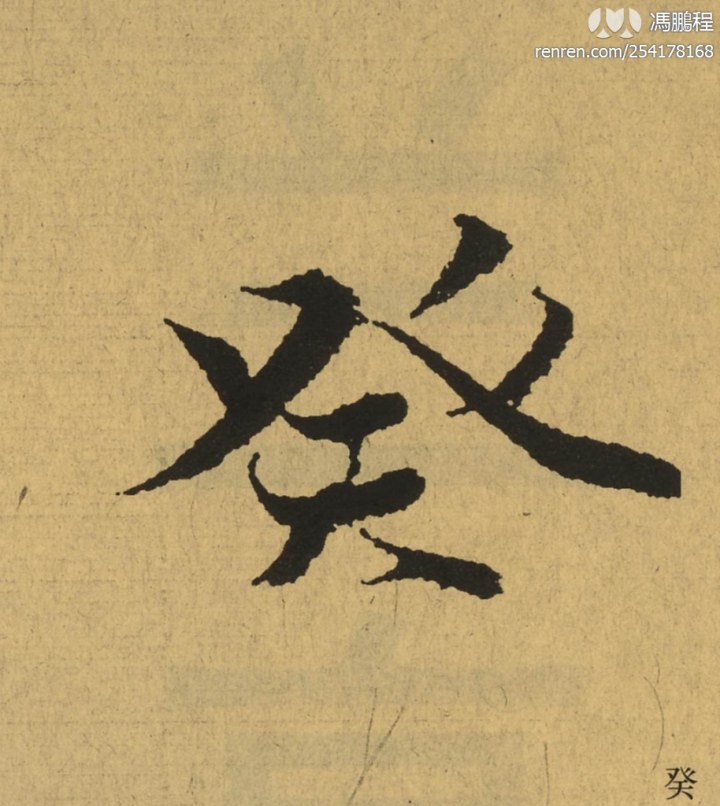 馮鵬程
renren.com/254178168
癸
癸